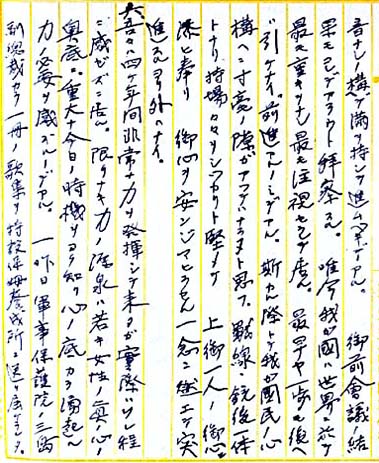 音ナシノ構ヘデ満ヲ持シテ進ムベキデアル。 御前會議ノ結
果モデアラウト拝察スル。唯今我ガ國ハ世界ニ於テ
最モ重キヲナシ最モ注視セラレテ居ル。最早ヤ一歩モ後ヘ
ハ引ケナイ、前進アルノミデアル。斯カル際ニ我ガ國民ノ心
構ヘニ寸毫ノ隙ガアツテハナラヌト思フ。戰線、銃後一体
トナリ持場々々ヲシツカリト堅メテ 上御一人ノ御心ニ
添ヒ奉リ 御心ヲ安ンジマヒラセン一念ニ燃エテ突
進スルヨリ外ハナイ。
吾々ハ四ケ年間非常ナ力ヲ発揮シテ来タガ實際ハソレ程
ニ感ゼズニ居ル。限リナキ力ノ源泉ハ若キ女性ノ真心ノ
奥底ニ重大ナ今日ノ時機ヲヨク知リ心ノ底カラ湧起ル
力ノ必要ヲ感ズルノデアル。 一昨日軍事保護院ノ三島
副総裁カラ一冊ノ歌集ヲ特設保姆養成所ニ送リ届ケ